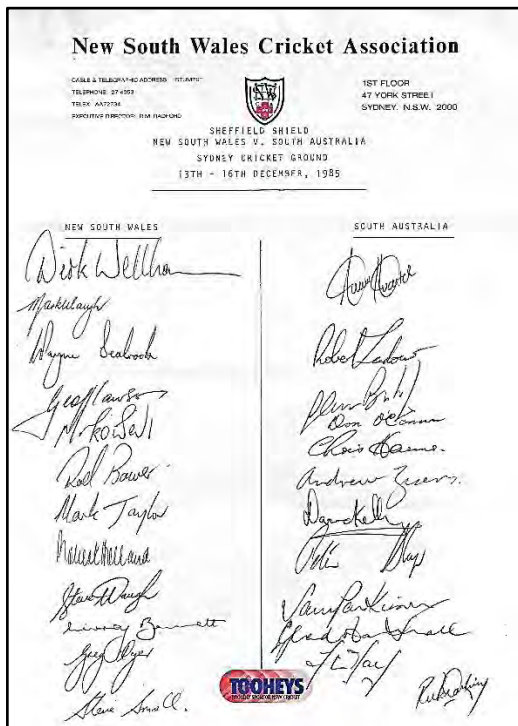 New South Wales Cricket Association
CABLE & TELEGRAPHIC ADDRESS
TELEPHONE: 27 4053
TELEX: AA72734
EXECUTIVE DIRECTOR: R.M. RADFORD
1ST FLOOR
47 YORK STREET
SYDNEY. N.S.W. 2000
SHEFFIELD SHIELD
NEW SOUTH WALES V. SOUTH AUSTRALIA
SYDNEY CRICKET GROUND
13TH - 16TH DECEMBER, 1985
NEW SOUTH WALES
Dirk Wellham
Mark Waugh
Wayne Seabrook
Geoff Lawson
Rod Bower
Mark Taylor
Robert Holland
Steve Waugh
Murray Bennett
Greg Dyer
Steve Small.
SOUTH AUSTRALIA
Robert Zadow
Glenn Bishop
Don O'Connor
Chris Harms.
Andrew Zesers.
Darryn Kelly
Peter Sleep
Sam Parkinson
TOOHEYS